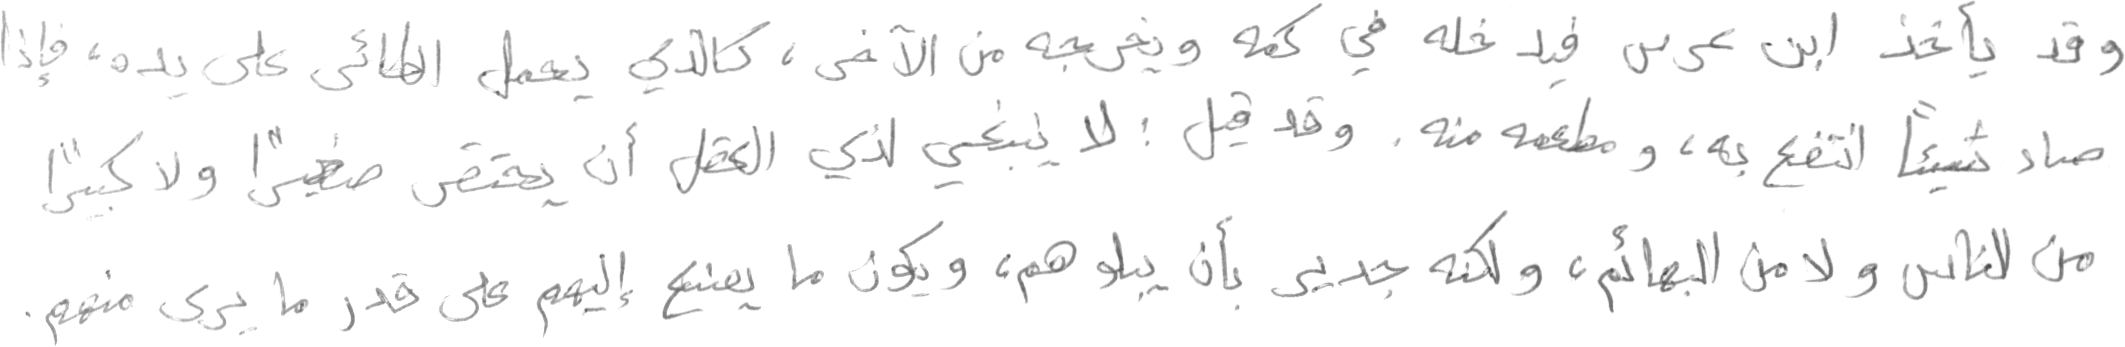 وقد يأخذ ابن عرس فيدخله في كمه ويخرجه من الآخر، كالذي يحمل الطائر على يده، فإذا
صاد شيئاً انتفع به، ومطعمه منه. وقد قيل: لا ينبغي لذي العقل أن يحتقر صغيرًا ولا كبيرًا
من الناس ولا من البهائم، ولكنه جدير بأن يبلوهم، ويكون ما يصنع إليهم على قدر ما يرى منهم.